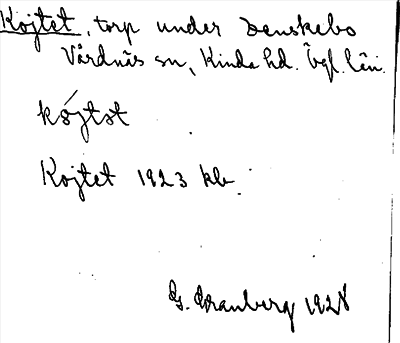 Kojtet, torp under Svenskebo
Vårdnäs sn, Kinda hd. Ögl. län.
kǿjtət
Kojtet 1923 kb.
G. Franberg 1928